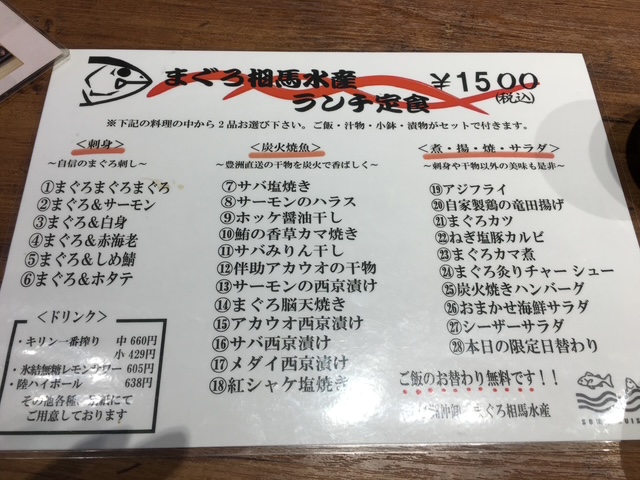 まぐろ相馬水産
ランチ定食
¥1500
(税込)
※下記の料理の中から2品お選び下さい。ご飯・汁物・小鉢・漬物がセットで付きます。
＜刺身＞
～自信のまぐろ刺し～
①まぐろまぐろまぐろ
②まぐろ&サーモン
③まぐろ&白身
④まぐろ&赤海老
⑤まぐろ&しめ鯖
⑥まぐろ&ホタテ
＜ドリンク＞
・キリン一番搾り 中 660円
小 429円
・氷結無糖レモンサワー 605円
・陸ハイボール 638円
その他各種、
ご用意しております
＜炭火焼魚＞
～豊洲直送の干物を炭火で香ばしく～
⑦サバ塩焼き
⑧サーモンのハラス
⑨ホッケ醤油干し
⑩鮪の香草カマ焼き
⑪サバみりん干し
⑫伴助アカウオの干物
⑬サーモンの西京漬け
⑭まぐろ脳天焼き
⑮アカウオ西京漬け
⑯サバ西京漬け
⑰メダイ西京漬け
⑱紅シャケ塩焼き
＜煮・揚・焼・サラダ＞
～刺身や干物以外の美味も是非～
⑲アジフライ
⑳自家製鶏の竜田揚げ
㉑まぐろカツ
㉒ねぎ塩豚カルビ
㉓まぐろカマ煮
㉔まぐろ炙りチャーシュー
㉕炭火焼きハンバーグ
㉖おまかせ海鮮サラダ
㉗シーザーサラダ
㉘本日の限定日替わり
ご飯のお替わり無料です！！
まぐろ相馬水産